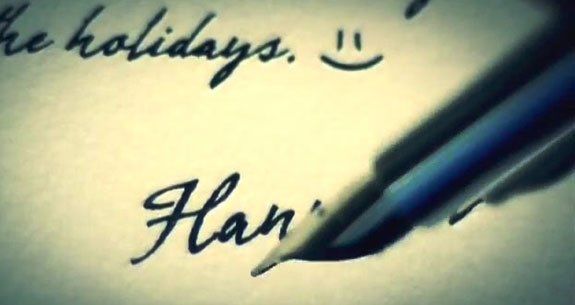 the holidays. ‿
Han